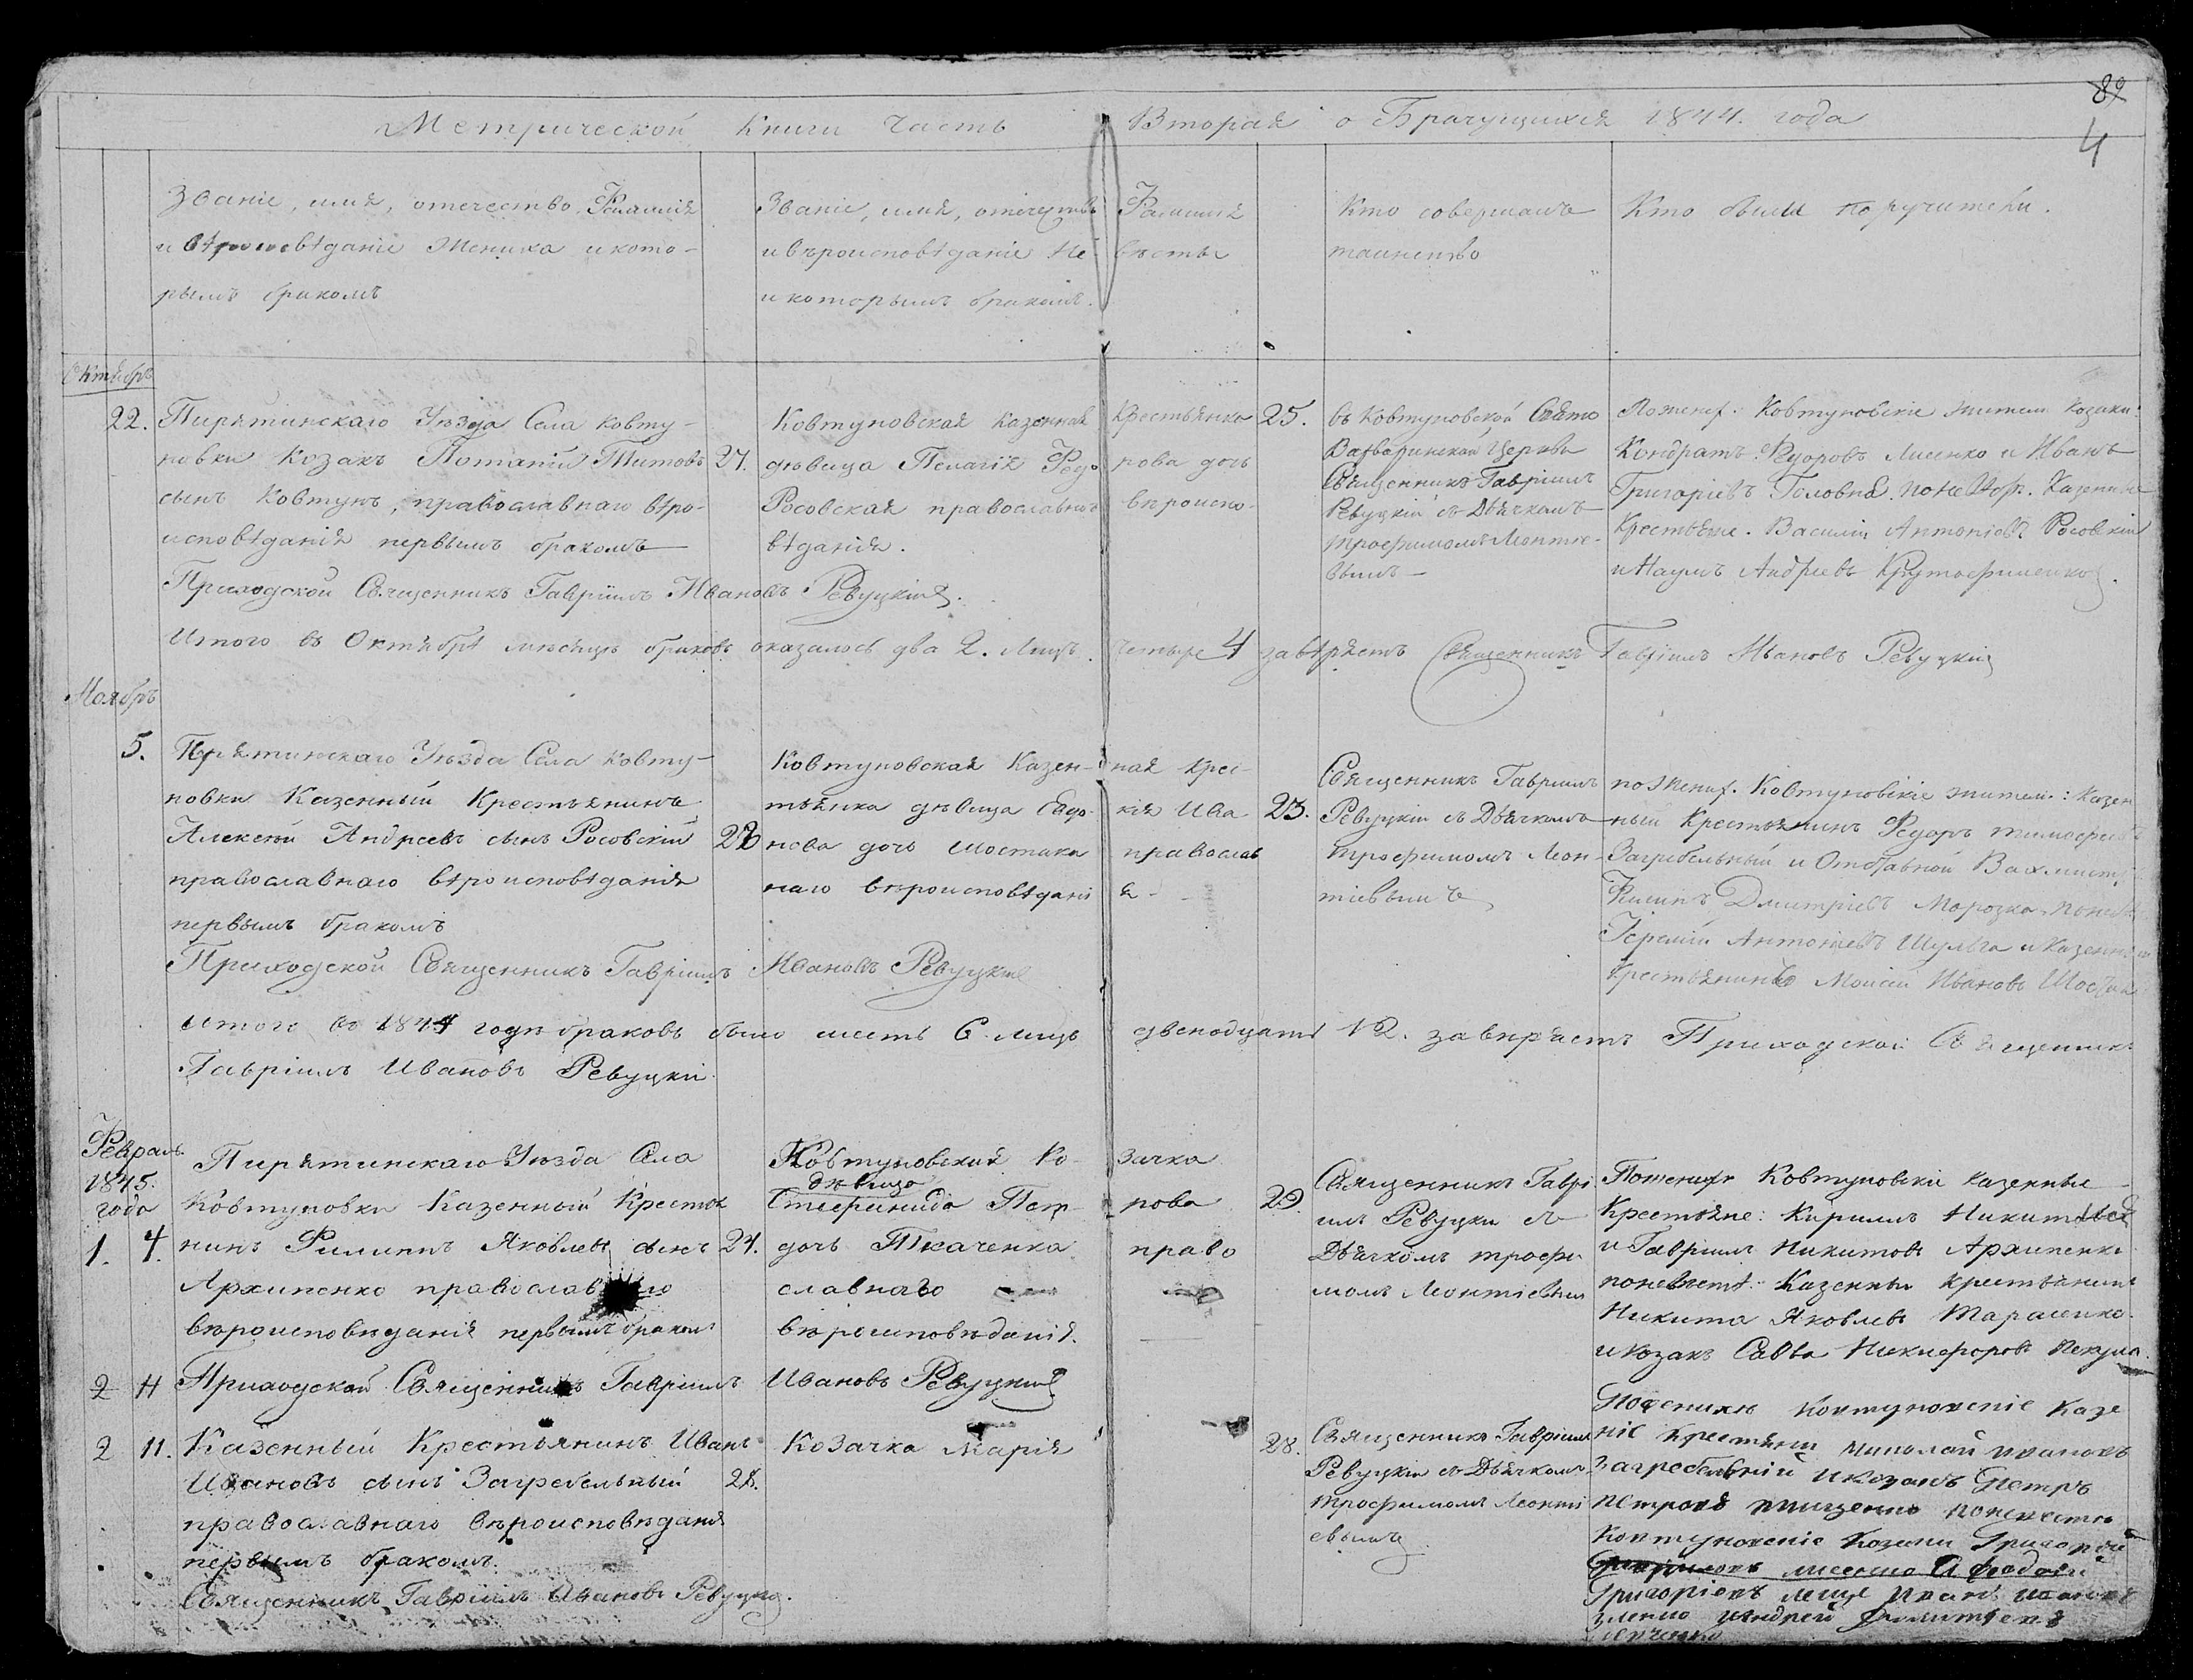 82
4
Метрической Книги Часть Вторая о Брачущихся 1844. года
Званіе, имя, отечество, Фамилія
и вѣроисповѣданіе Жениха и кото-
рымъ бракомъ
Званіе, имя, отечество Фамилія
и вѣроисповѣданіе Не- вѣсты
и которымъ бракомъ.
Кто совершалъ
таинство
Кто были поручители.
Октябрь
22.
Пирятинскаго Уезда Села Ковту-
новки Козакъ Потапій Титовъ
сынъ Ковтунъ, православнаго вѣро-
исповѣданія первымъ бракомъ
27.
Ковтуновская казенная Крестьянка
дѣвица Пелагія Федо рова дочь
Росовская православнаго вѣроиспо-
вѣданія.
25.
въ Ковтуновской Свято
Варваринской Церкви
Священникъ Гавріилъ
Ревуцкій съ Дьячкомъ
Трофимомъ Леонтіе-
вымъ
Пожених. Ковтуновскіе жители козаки:
Кондратъ Федоровъ Лисенко и Иванъ
Григоріевъ Головня. по Невѣст. Казенные
Крестьяне. Василій Антоніевъ Росовскій
и Наумъ Андреевъ Крутофименко.
Приходской Священникъ Гавріилъ Ивановъ Ревуцкій.
Итого въ Октябрѣ мѣсяцѣ браковъ оказалось два 2. Лицъ четыре 4 завѣряетъ Священникъ Гавріилъ Ивановъ Ревуцкій
Ноябрь
5.
Пирятинскаго Уѣзда Села Ковту-
новки Казенный Крестьянинъ
Алексѣй Андреевъ сынъ Росовскій
православнаго вѣроисповѣданія
первымъ бракомъ
Ковтуновская Казен- ная Крес-
тьянка дѣвица Евдо- кія Ива
нова дочь Шостака православ
наго вѣроисповѣдані я-
23.
Священникъ Гавріилъ
Ревуцкій съ Дьячкомъ
Трофимомъ Леон-
тіевымъ
по Жених. Ковтуновскіе жители: Казен
ный Крестьянинъ Федоръ Тимофеевъ
Загребельный и Отставной Вахмистръ
Филипъ Дмитріевъ Морозко
Іеремій Антоніевъ Шульга и Казенный
Крестьянинъ Моисей Ивановъ Шостак
Приходской Священникъ Гавріилъ Ивановъ Ревуцкій
Итого въ 1844 годѣ браковъ было шесть 6 лицъ двенодцать 12. завѣряетъ Приходской Священникъ
Гавріилъ Ивановъ Ревуцкій.
Февраль
1845.
года
1. 4.
Пирятинскаго Уѣзда Села
Ковтуновки Казенный Крестья
нинъ Филиппъ Яковлевъ сынъ
Архипенко православнаго
вѣроисповѣданія первымъ бракомъ
24.
Ковтуновская Ко- зачка
дѣвица
Стефанида Пет- рова
дочь Ткаченка право
славнаго
вѣроисповѣданія.
29.
Священникъ Гаврі
илъ Ревуцкій съ
Дьячкомъ Трофи
момъ Леонтіевым
Поженихѣ Ковтуновскіи казенные
Крестьяне: Кирилъ Никитовъ
и Гавріилъ Никитовъ Архипенко
поневѣстѣ: Казенный крестьянинъ
Никита Яковлевъ Тарасенко.
и Козакъ Савва Никифоровъ
2 11
Приходской Священникъ Гавріилъ Ивановъ Ревуцкій
2 11.
Казенный Крестьянинъ Иванъ
Ивановъ сынъ Загребельный
православнаго вѣроисповѣданія
первымъ бракомъ.
28.
Козачка Марія
28.
Священникъ Гавріилъ
Ревуцкій съ Дьячкомъ
Трофимомъ Леонті
евымъ
Поженихѣ Ковтуновскіе Казе
ніе Крестьяни Миколай Ивановъ
Загребельній и козакъ Петръ
Петровъ поневѣсте
Ковтуновскіе Козаки Григорій
Григоріевъ Иванъ Ивановъ
Андрей
Священникъ Гавріилъ Ивановъ Ревуцкій.